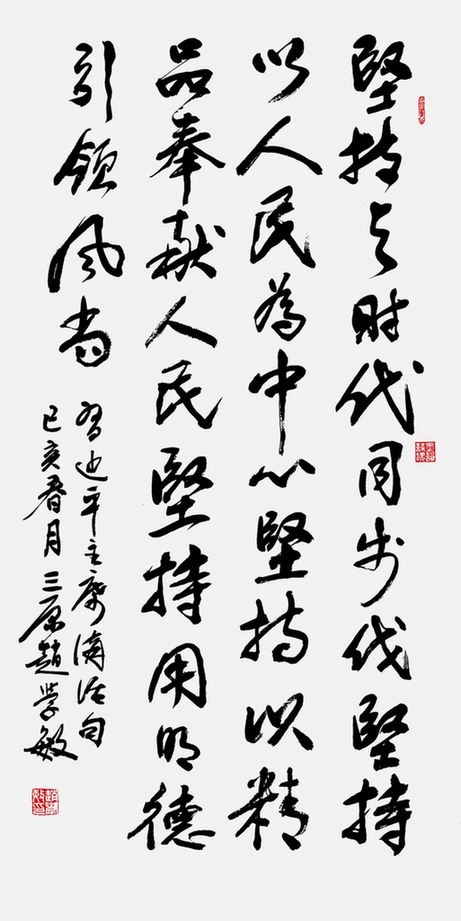 堅持与时代同步伐堅持
以人民為中心堅持以精
品奉献人民堅持用明德
引领风尚
習近平主席講话句
己亥春月三原趙学敏